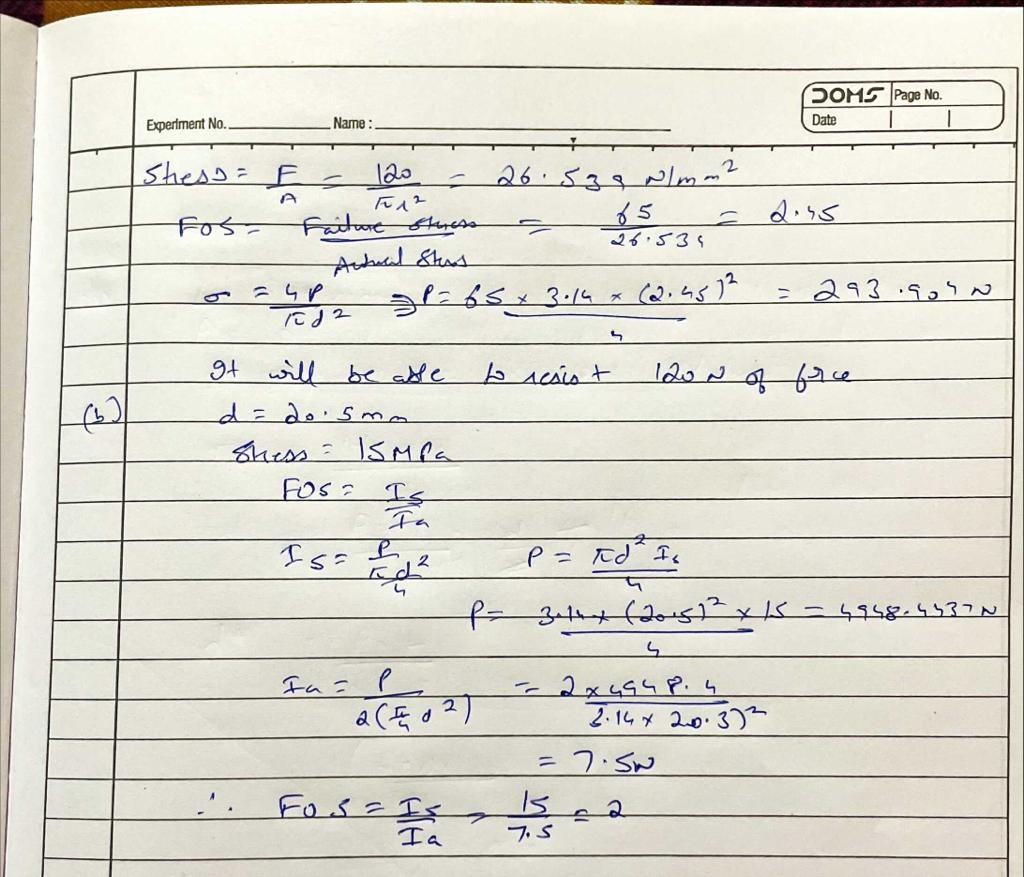 DOMS Page No.
Experiment No. Name : Date
Stress = F/A = 120/πr² = 26.539 N/mm²
FOS = Failure Stress/Actual Stress = 65/26.539 = 2.45
σ = 4P/πd² ⇒ P = 65 × 3.14 × (2.45)²/4 = 293.904 N
It will be able to resist 120 N of force
(b) d = 20.5 mm
Stress = 15 MPa
FOS = Is/Ia
Is = P/(πd²/4) P = πd² Is/4
P = 3.14 × (20.5)² × 15/4 = 4948.4437 N
Ia = P/2(π/4 d²) = 2 × 4948.4/3.14 × 20.3)²
= 7.5 N
∴ FOS = Is/Ia = 15/7.5 = 2